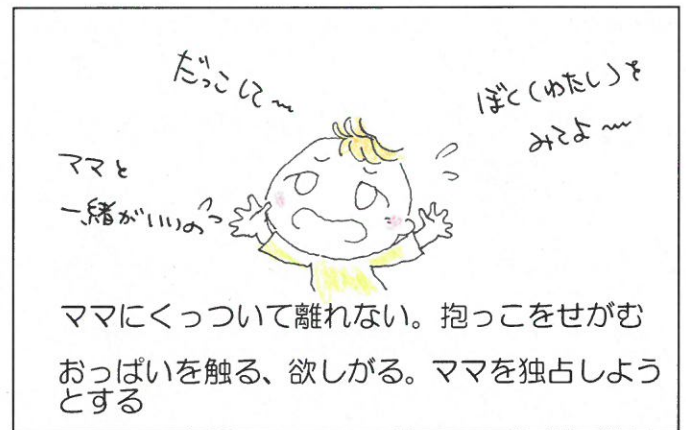 だっこして〜
ぼく(わたし)を
みてよ〜
ママと
一緒がいいのっ
ママにくっついて離れない。抱っこをせがむ
おっぱいを触る、欲しがる。ママを独占しよう
とする